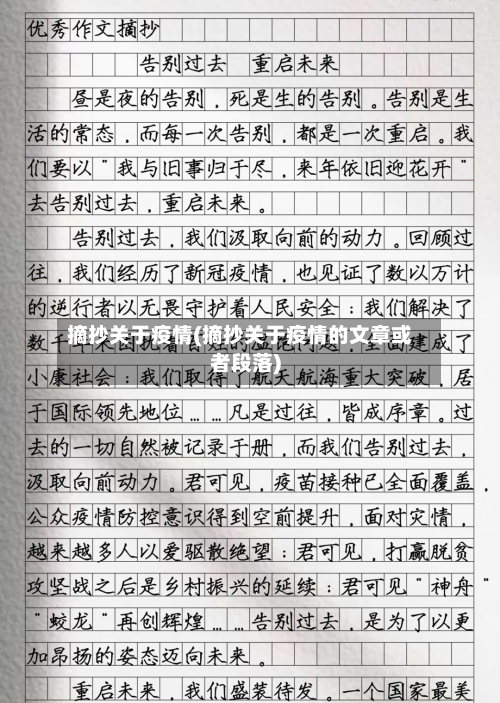 优秀作文摘抄
告别过去 重启未来
昼是夜的告别，死是生的告别。告别是生
活的常态，而每一次告别，都是一次重启。我
们要以"我与旧事归于尽，来年依旧迎花开"
去告别过去，重启未来。
告别过去，我们汲取向前的动力。回顾过
往，我们经历了新冠疫情，也见证了数以万计
的逆行者以无畏守护着人民安全：我们解决了
摘抄关于疫情(摘抄关于疫情的文章或
者段落)
数千年来困扰着 建成了
小康社会：我们取得了航天航海重大突破，居
于国际领先地位……凡是过往，皆成序章。过
去的一切自然被记录于册，而我们告别过去，
汲取向前动力。君可见，疫苗接种已全面覆盖，
公众疫情防控意识得到空前提升，面对灾情，
越来越多人以爱驱散绝望：君可见，打赢脱贫
攻坚战之后是乡村振兴的延续：君可见"神舟"
"蛟龙"再创辉煌……告别过去，是为了以更
加昂扬的姿态迈向未来。
重启未来，我们盛装待发。一个国家最美